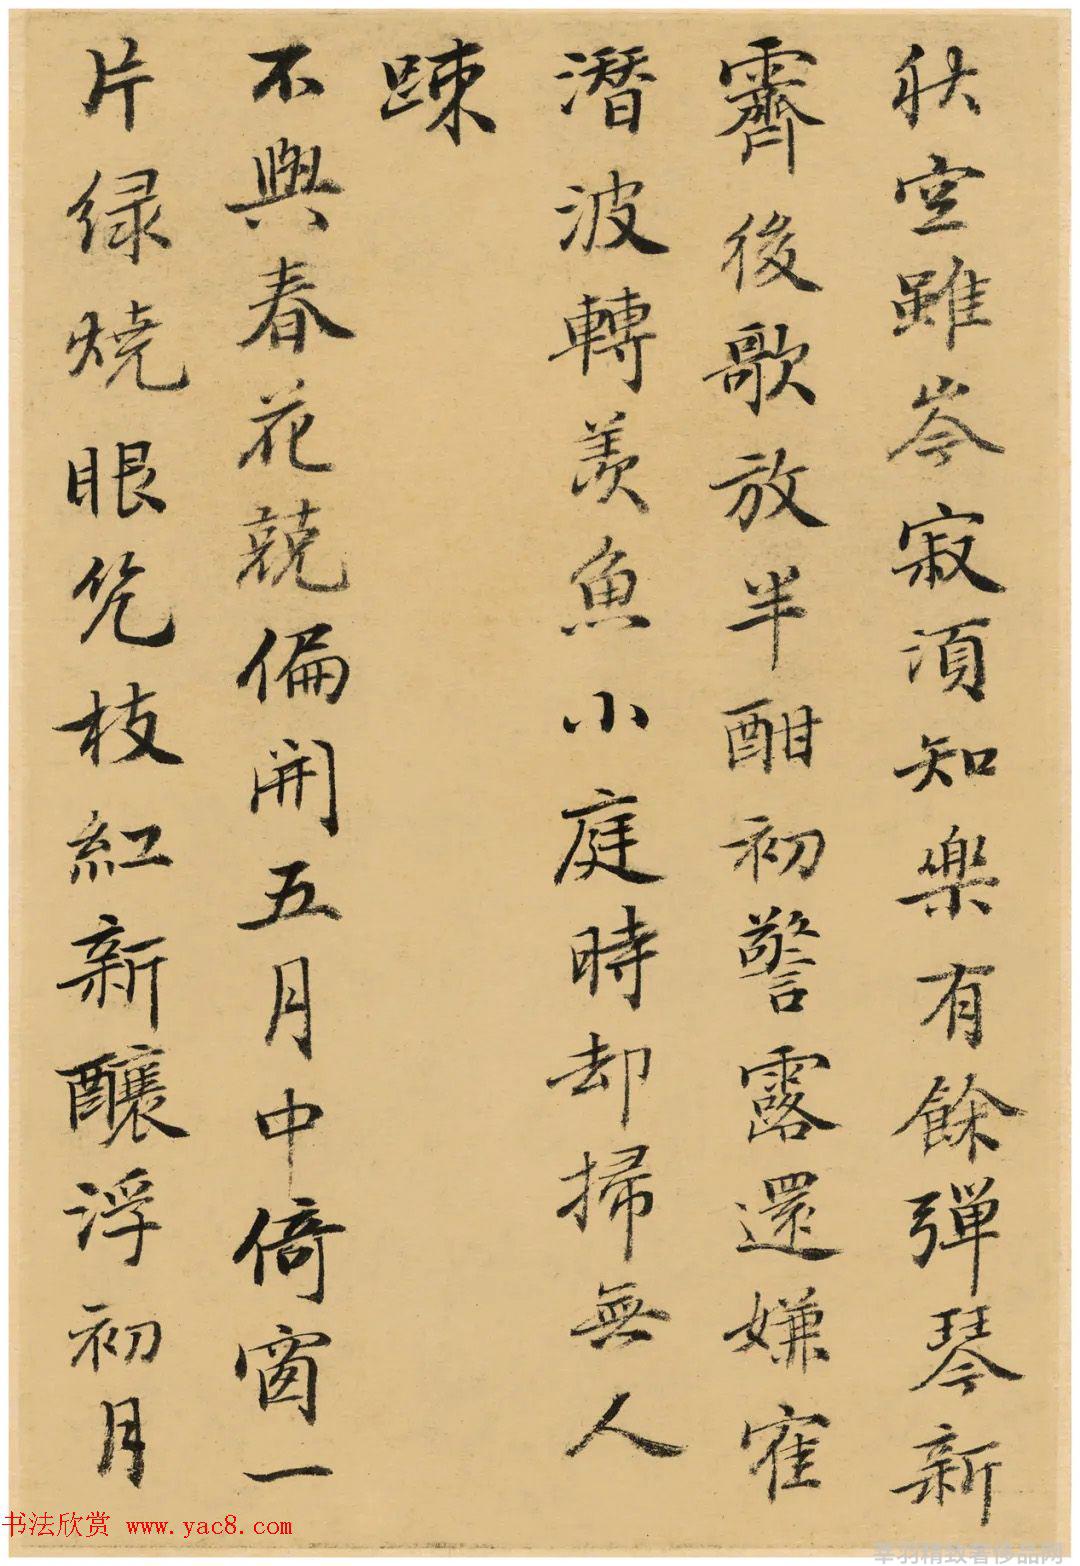 秋空雖岑寂須知樂有餘彈琴新
霽後歌放半酣初警露還嫌寉
潛波轉羨魚小庭時却掃無人
踈
不與春花競偏開五月中倚窗一
片緑燒眼筅枝紅新釀浮初月
书法欣赏 www.yac8.com